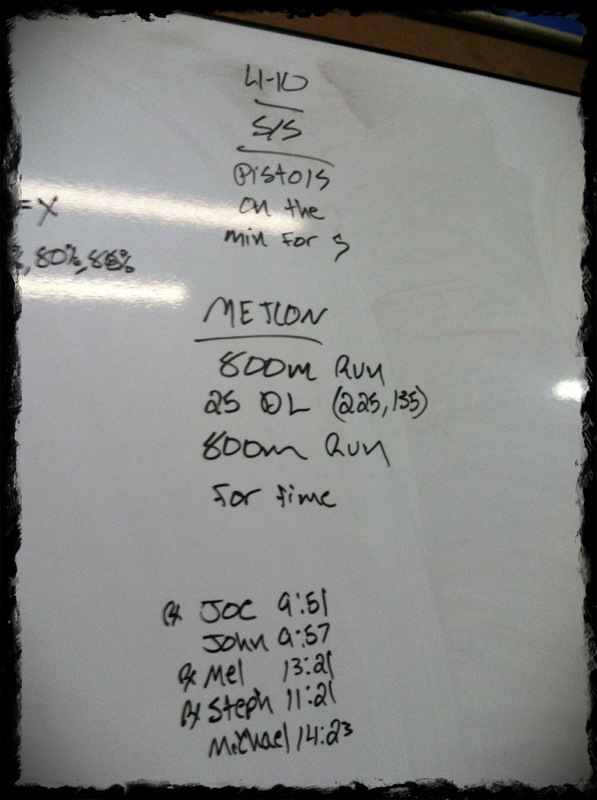 4-10
S/S
Pistols
on the
min for 5
= X
%, 80%, 85%
METCON
800m Run
25 DL (225, 135)
800m Run
For time
Rx Joe 9:51
John 9:57
Rx Mel 13:21
Rx Steph 11:21
Michael 14:23